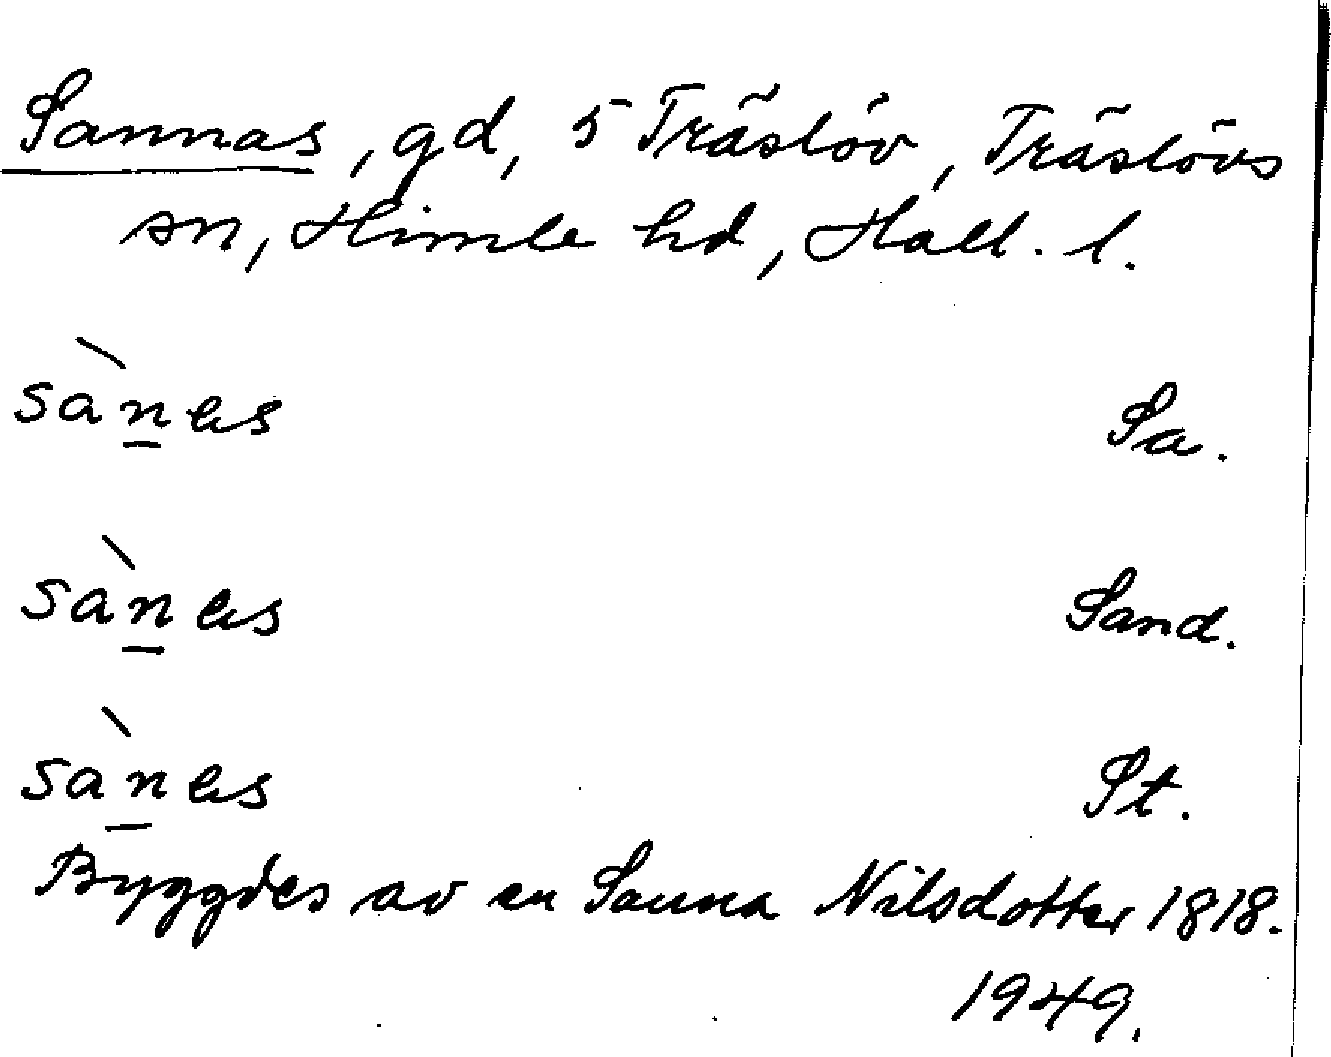 Sannas, gd, 5 Träslöv, Träslövs
sn, Himle hd, Hall. l.
sànas Sa.
sànas Sand.
sànas St.
Byggdes av en Sanna Nilsdotter 1818.
1949.